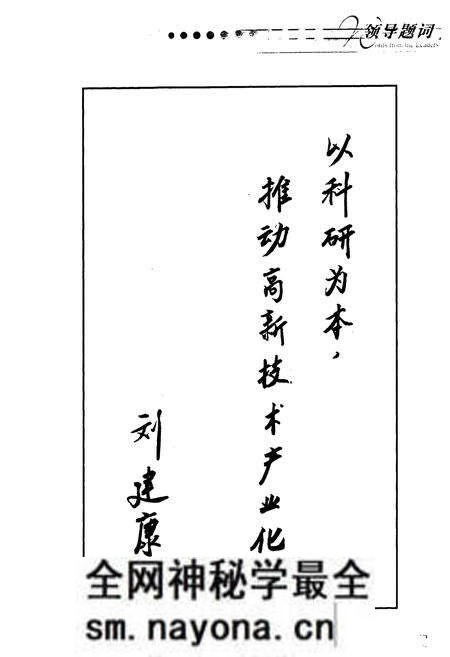 领导题词
Words from the Leaders
以科研为本，
推动高新技术产业化
刘建康
全网神秘学最全
sm.nayona.cn